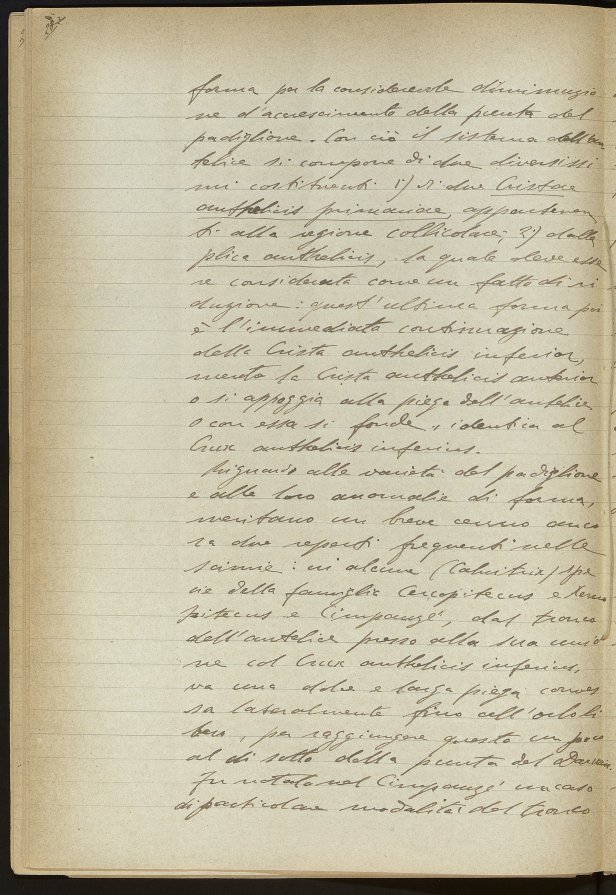 forma per la considerevole diminuzio
ne d'accrescimento della punta del
padiglione. Con ciò il sistema dell'an
telice si compone di due diversissi
mi costituenti 1) di due Cristae
anthelicis primariae, appartenen
ti alla regione collicolare; 2) dalla
plica anthelicis, la quale deve esse
re considerata come un fatto di ri
duzione: quest'ultima forma poi
è l'immediata continuazione
della Crista anthelicis inferior,
mentre la Crista anthelicis anterior
o si appoggia alla piega dell'antelice
o con essa si fonde, identica al
Crux anthelicis inferius.
Riguardo alle varietà del padiglione
e alle loro anomalie di forma,
meritano un breve cenno anco
ra due reperti frequenti nelle
scimie: in alcune (Calnitrix) spe
cie della famiglia Cercopitecus e
pitecus e Cimpanzé, dal tronco
dell'antelice presso alla sua unio
ne col Crux anthelicis inferius,
va una dolce e larga piega conves
sa lateralmente fino all'orlo li
bero, per raggiungere questo un poco
al di sotto della punta del Darwin.
Fu notato nel Cimpanzé un caso
di particolare modalità del tronco